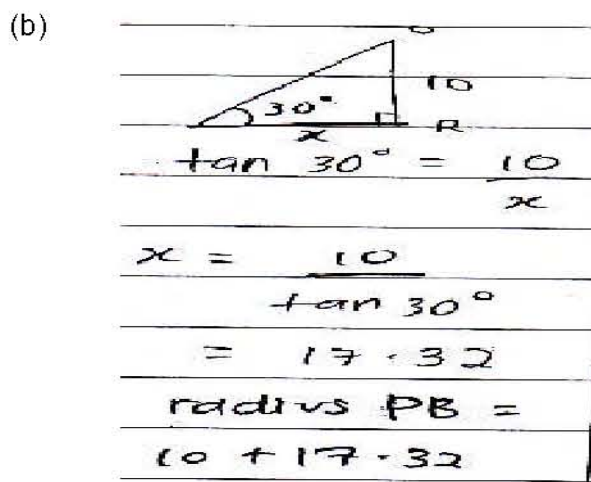 (b)
O
10
30°
x
R
tan 30° = 10
x
x = 10
tan 30°
= 17.32
radius PB =
10 + 17.32